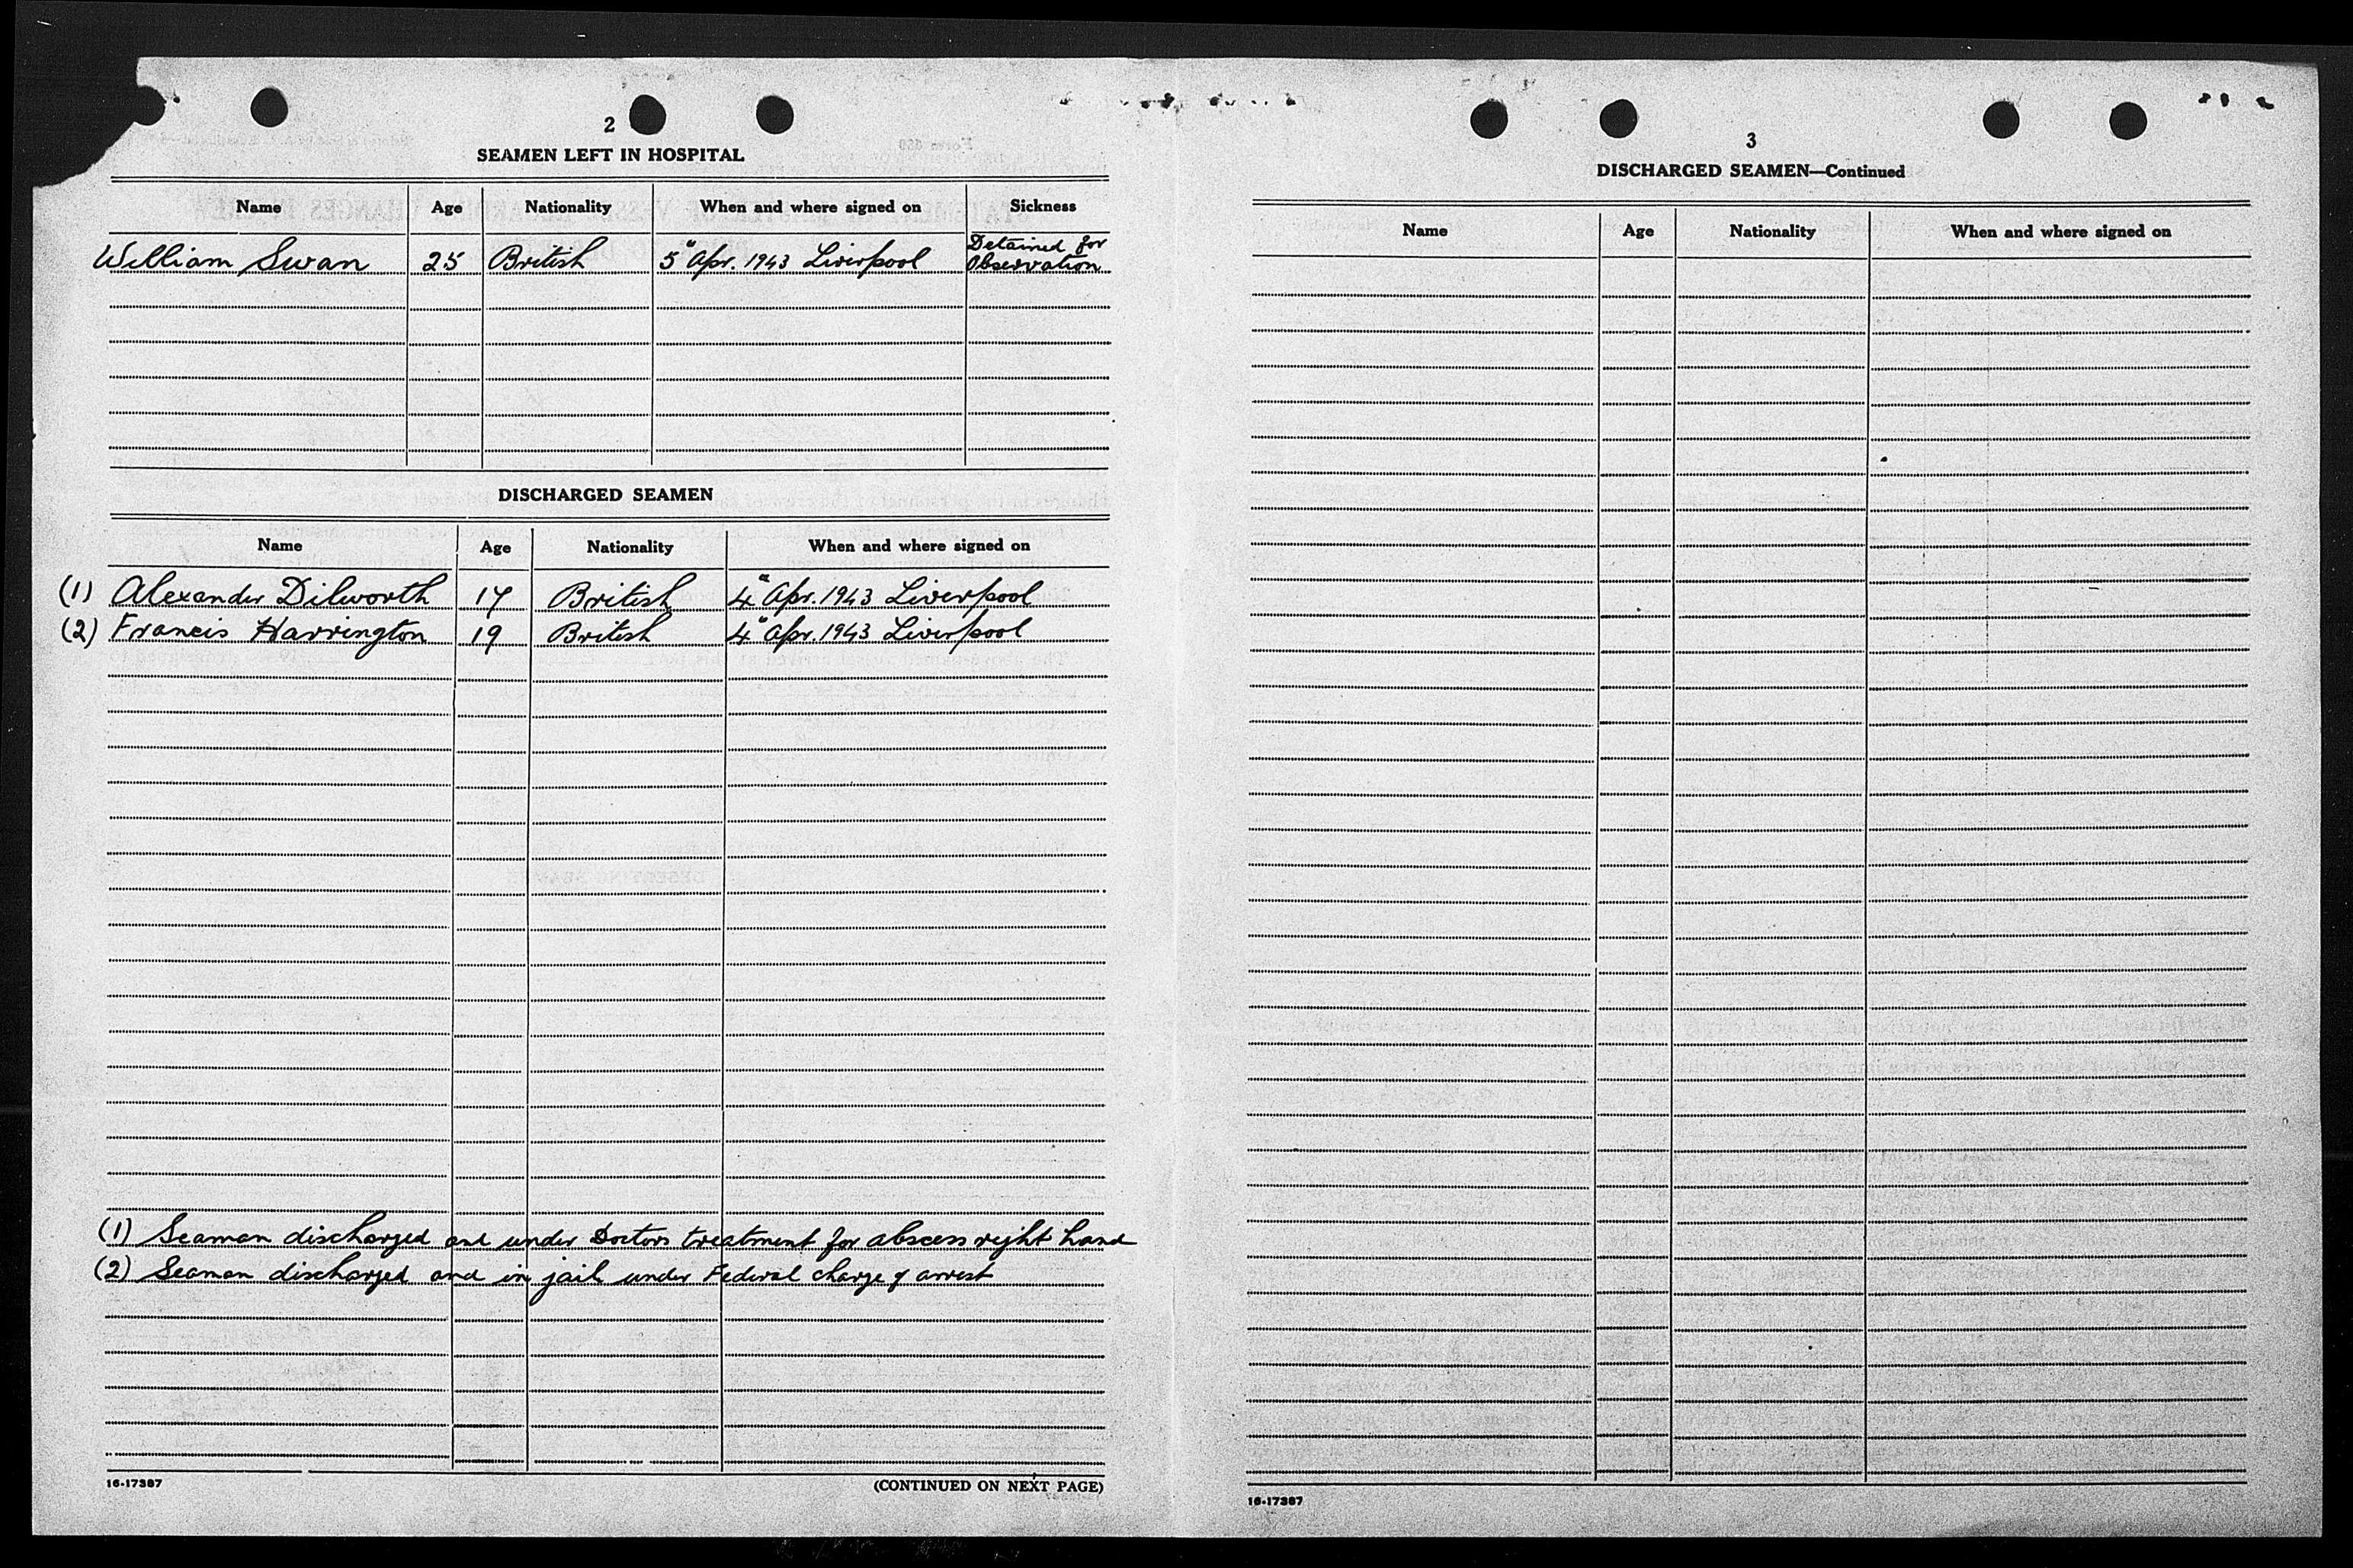 2
SEAMEN LEFT IN HOSPITAL
Name Age Nationality When and where signed on Sickness
William Swan 25 British 5" Apr. 1943 Liverpool Detained for
Observation
DISCHARGED SEAMEN
Name Age Nationality When and where signed on
(1) Alexander Dilworth 17 British 4" Apr. 1943 Liverpool
(2) Francis Harrington 19 British 4" Apr. 1943 Liverpool
(1) Seaman discharged and under Doctors treatment for abscess right hand
(2) Seaman discharged and in jail under Federal charge & arrest
16-17387
(CONTINUED ON NEXT PAGE)
3
DISCHARGED SEAMEN—Continued
Name Age Nationality When and where signed on
16-17387